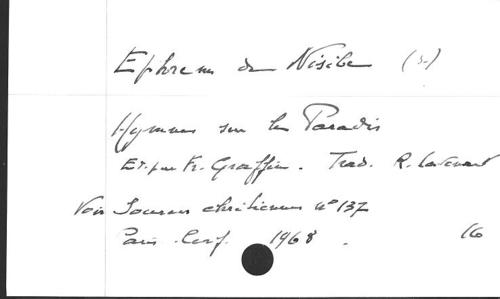 Ephrem de Nisibe (S.)
Hymnes sur le Paradis
Et. par Fr. Graffin. Trad. R. Lavenant
Voir Sources chrétiennes n° 137
Paris. Cerf. 1968.
16